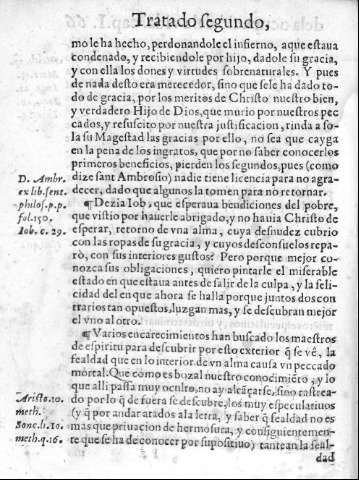 Tratado segundo,
mo le ha hecho, perdonandole el infierno, a que estaua
condenado, y recibiendole por hijo, dadole su gracia,
y con ella los dones y virtudes sobrenaturales. Y pues
de nada desto era merecedor, sino que se le ha dado to-
do de gracia, por los meritos de Christo nuestro bien,
y verdadero Hijo de Dios, que murio por nuestros pe
cados, y resuscito por nuestra justificacion, rinda a so-
la su Magestad las gracias por ello, no sea que cayga
en la pena de los ingratos, que por no saber conocer los
primeros beneficios, pierden los segundos, pues (como
D. Ambr. dize sant Ambrosio) nadie tiene licencia para no agra-
ex lib. sent. decer, dado que algunos la tomen para no retornar.
philos. p. p. ¶ Dezia Iob, que esperaua bendiciones del pobre,
fol. 150. que vistio por hauerle abrigado, y no hauia Christo de
Iob. c. 29. esperar, retorno de vna alma, cuya desnudez cubrio
con las ropas de su gracia, y cuyos desconsuelos repa-
rò, con sus interiores gustos? Pero porque mejor co-
nozca sus obligaciones, quiero pintarle el miserable
estado en que estaua antes de salir de la culpa, y la feli-
cidad del en que ahora se halla porque juntos dos con
trarios tan opuestos, luzgan mas, y se descubran mejor
el vno al otro.
¶ Varios encarecimientos han buscado los maestros
de espiritu para descubrir por esto exterior q̃ se vè, la
fealdad que en lo interior de vn alma causa vn peccado
mortal. Que como es buzal nuestro conocimiẽto, y lo
que alli passa muy oculto, no ay alcãçarse, sino rastrea-
Aristo. 10. do por lo q̃ de fuera se descubre, los muy especulatiuos
meth. (y q̃ por andar atados a la letra, y saber q̃ fealdad no es
Sonc. li. 10. mas que priuacion de hermosura, y consiguientemen-
meth. q. 16. te que se ha de conocer por su positiuo) tantean la feal-
dad